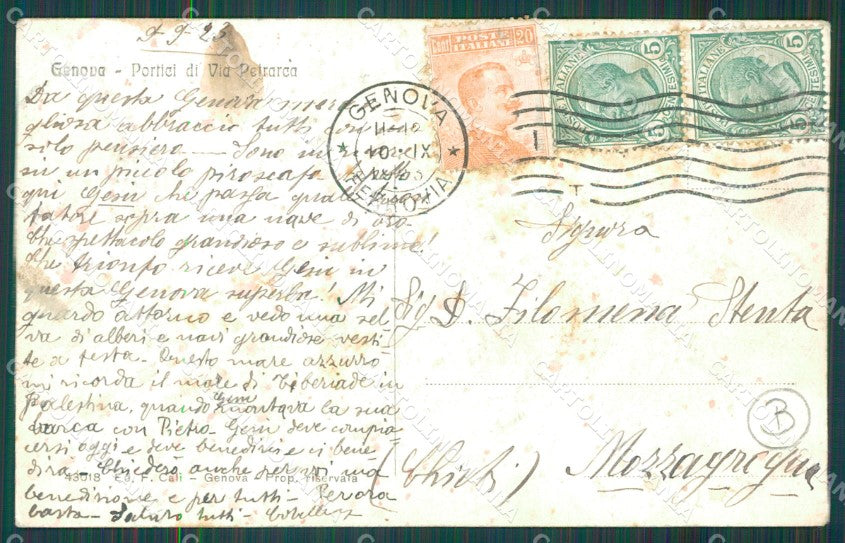 9-9-23
Genova - Portici di Via Petrarca
Da questa Genova mera
gliosa abbraccio tutti con uno
solo pensiero - Sono in
su un piccolo piroscafo
qui Gesù che passa quale
tatore sopra una nave di oro
Che spettacolo grandioso e sublime!
Che trionfo riceve Gesù in
questa Genova superba! Mi
guardo attorno e vedo una sel-
va di alberi e navi grandiose vesti-
te a festa - Questo mare azzurro
mi ricorda il mare di Tiberiade in
Palestina, quando Gesù montava la sua
barca con Pietro - Gesù deve compia
cersi oggi e deve benedirci e ci bene
dirà - Chiederò anche per voi una
benedizione e per tutti - Per ora
basta - Saluto tutti -
43018 Ed. F. Cali - Genova - Prop. riservata
GENOVA
FERROVIA
Cent. 20
POSTE
ITALIANE
5
5
5
5
Signora
Sig D. Filomena Stenta
(Chieti) Mozzagrogna
B
CARTOLINOMANIA